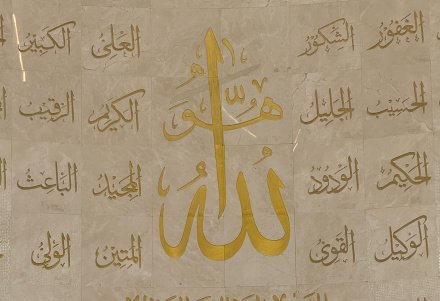 الغفور الشكور العلى الكبير
الحسيب الجليل هُوَ الكريم الرقيب
الحكيم الودود الله المجيد الباعث
الوكيل القوى المتين الولى